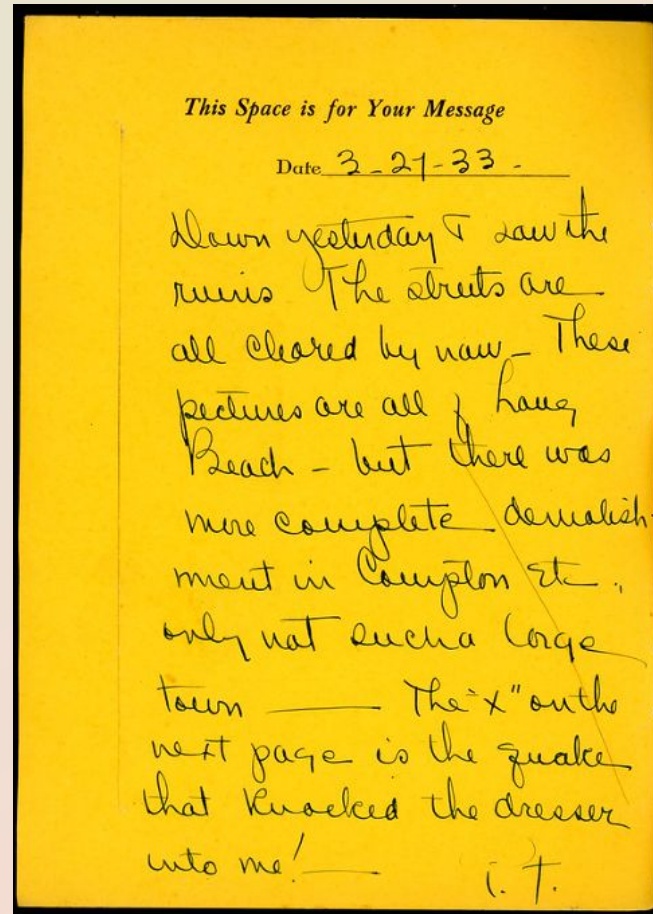 This Space is for Your Message
Date 3-27-33-
Down yesterday & saw the
ruins The streets are
all cleared by now - These
pictures are all of Long
Beach - but there was
more complete demolish-
ment in Compton Etc.,
only not such a large
town — The "X" on the
next page is the quake
that knocked the dresser
into me! —
i. t.